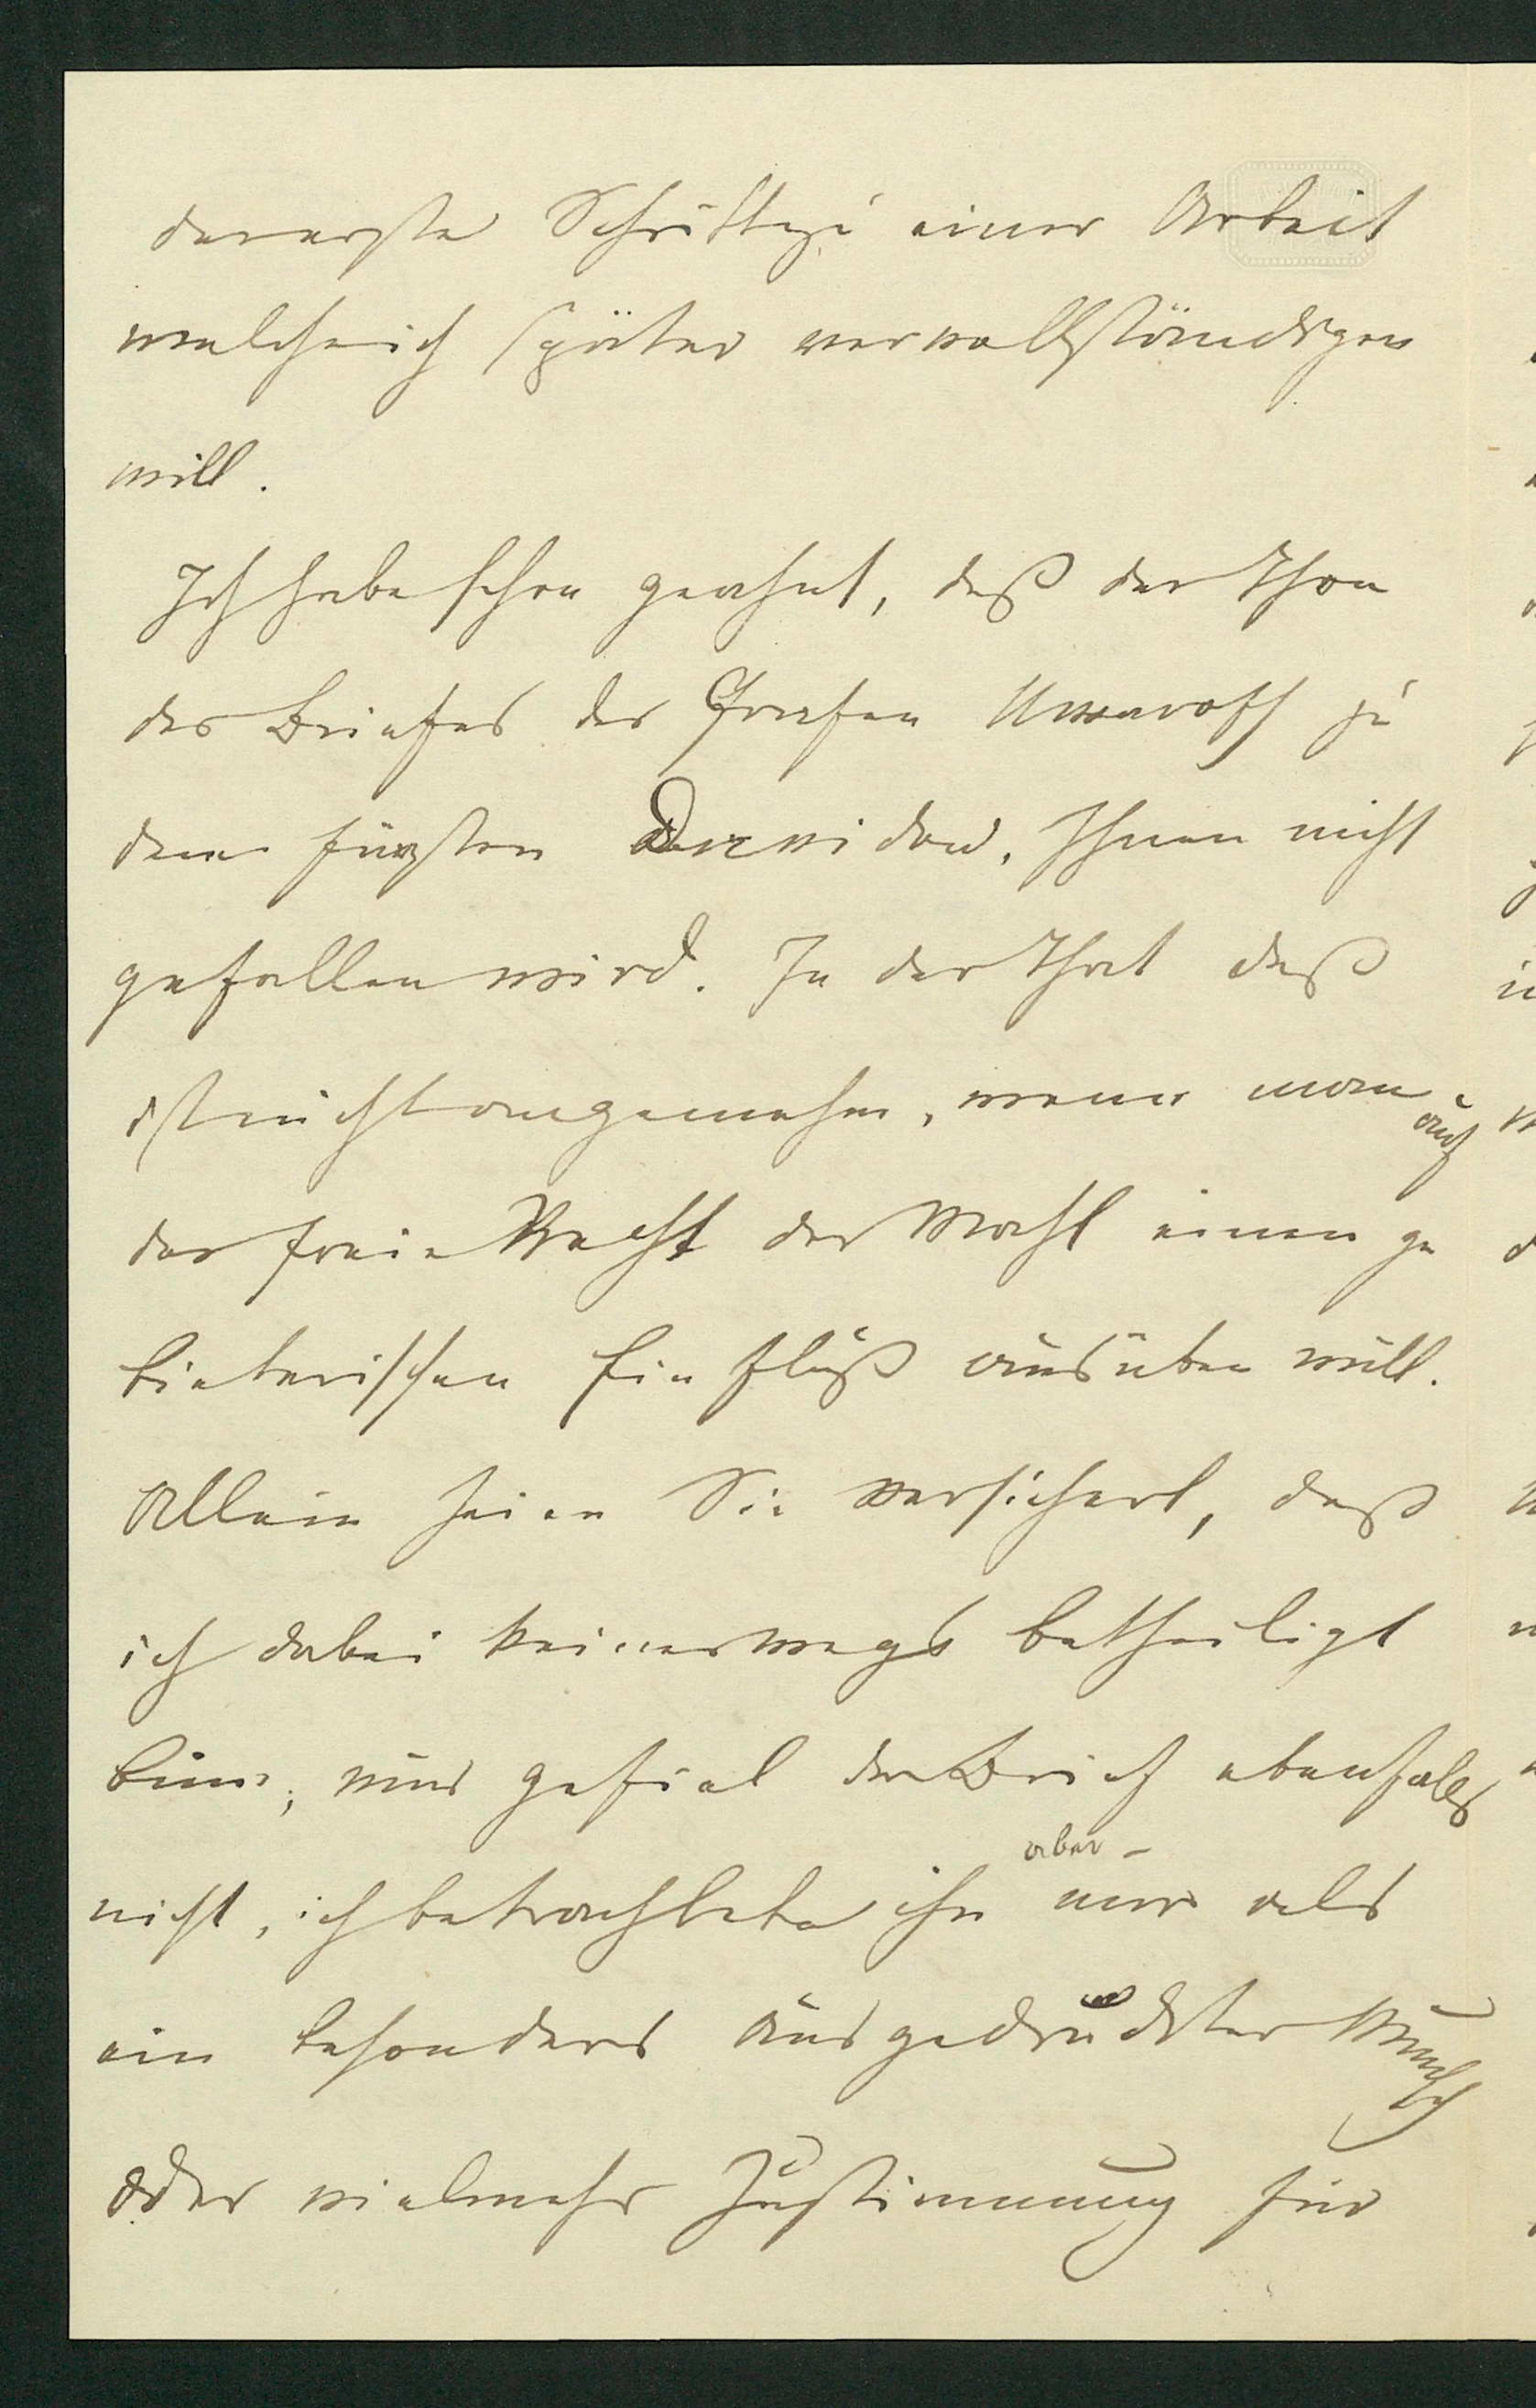 der erste Schritt zu einer Arbeit
welche ich später vervollständigen
will.
Ich habe schon geahnt, daß der Thon
des Briefes des Grafen Uwaroff zu
dem Fürsten Dawidow, Ihnen nicht
gefallen wird. In der That daß
ist nicht angenehm, wenn man auf
das freie Recht der Wahl einen ge
bieterischen Einfluß ausüben will.
Allein seien Sie versichert, daß
ich dabei keineswegs betheiligt
bin; mir gefiel der Brief ebenfalls
nicht, ich betrachtete ihn aber – nur als
ein besonders ausgedruckter Wunsch
oder vielmehr Zustimmung für